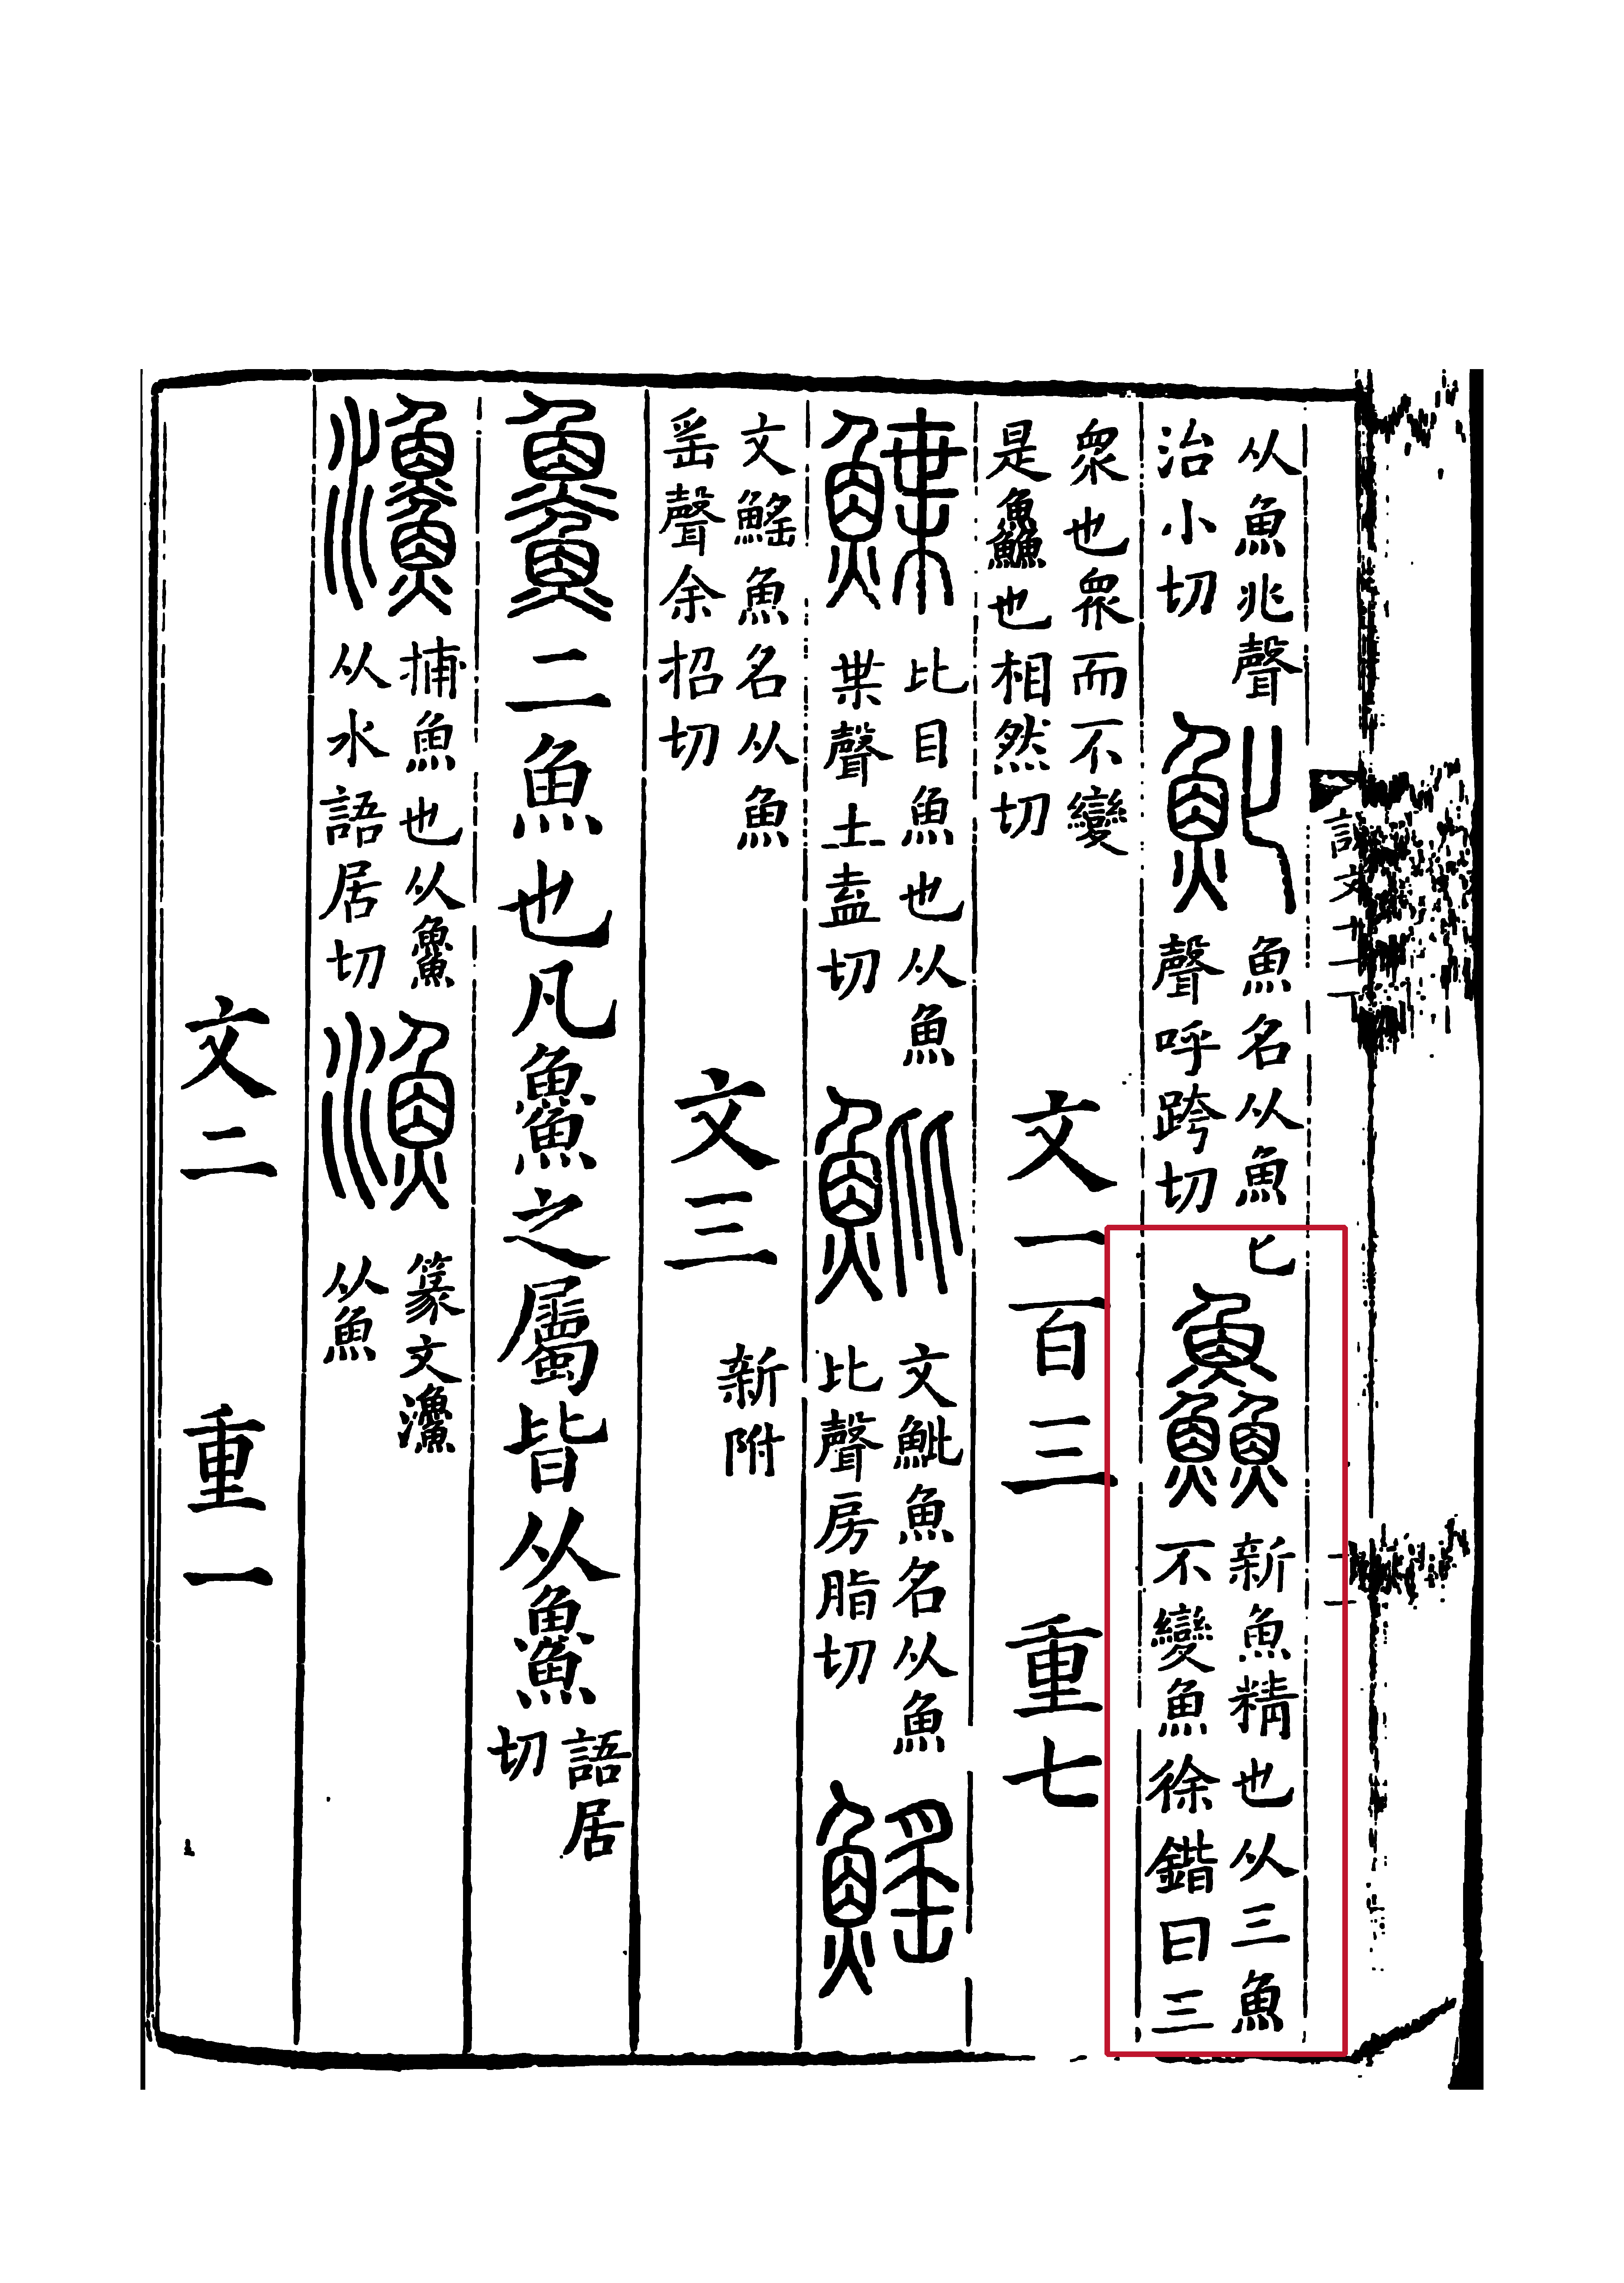 說文十一下
从魚兆聲
治小切
魤
魚名从魚匕
聲呼跨切
鱻
新魚精也从三魚
不變魚徐鍇曰三
眾也眾而不變
是鱻也相然切
文一百三 重七
鰈
比目魚也从魚
枼聲土盍切
魮
文魮魚名从魚
比聲房脂切
鰩
文鰩魚名从魚
䍃聲余招切
文三 新附
䲆二魚也凡䲆之屬皆从䲆
語居
切
𩼪
捕魚也从䲆
从水語居切
漁
篆文𩼪
从魚
文二 重一